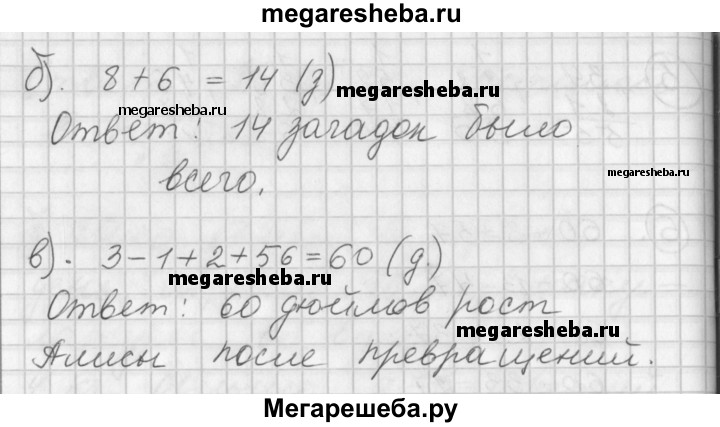 megaresheba.ru
б). 8 + 6 = 14 (з)
megaresheba.ru
megaresheba.ru
Ответ: 14 загадок было
всего.
megaresheba.ru
в). 3 - 1 + 2 + 56 = 60 (д.)
megaresheba.ru
Ответ: 60 дюймов рост
megaresheba.ru
Алисы после превращений.
Мегарешеба.ру